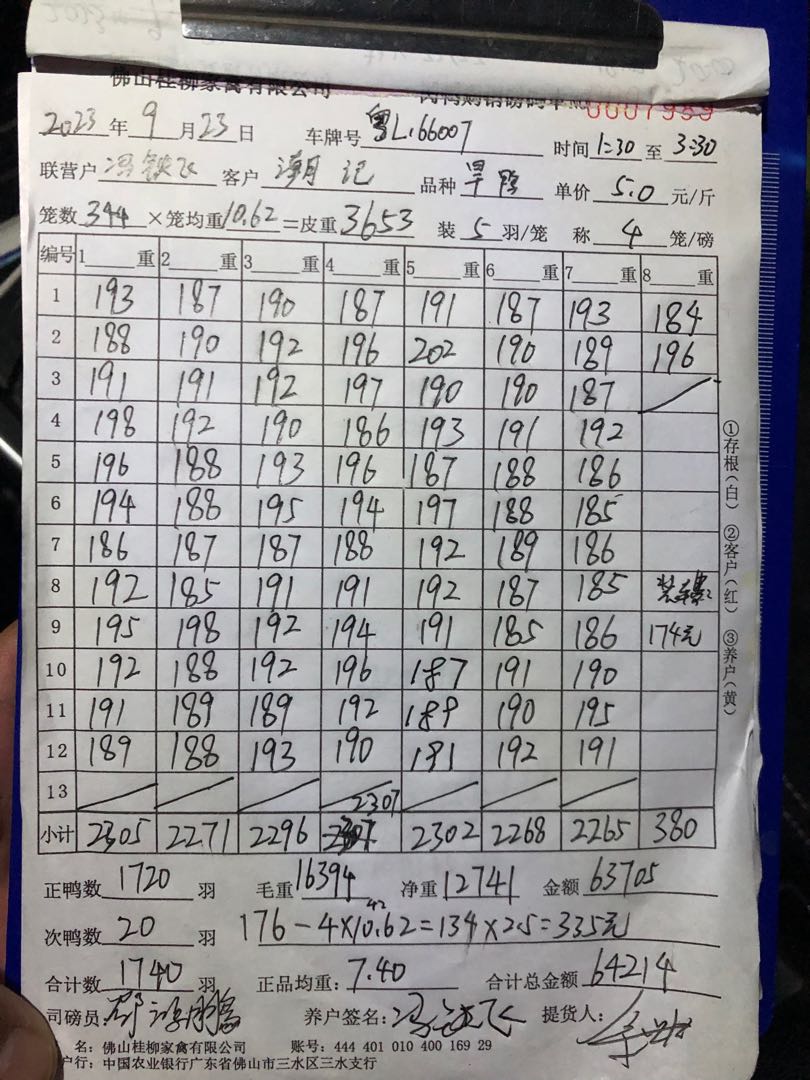 佛山桂柳家禽有限公司 肉鸭购销磅码单 0007959
2023年9月23日 车牌号 粤L.66007 时间 1:30 至 3:30
联营户 冯铁飞 客户 潮记 品种 旱鸭 单价 5.0 元/斤
笼数 344 ×笼均重 10.62 =皮重 3653 装 5 羽/笼 称 4 笼/磅
编号 1 重 2 重 3 重 4 重 5 重 6 重 7 重 8 重
1 193 187 190 187 191 187 193 184
2 188 190 192 196 202 190 189 196
3 191 191 192 197 190 190 187 /
4 198 192 190 186 193 191 192
5 196 188 193 196 187 188 186
6 194 188 195 194 197 188 185
7 186 187 187 188 192 189 186
8 192 185 191 191 192 187 185 装车费:
9 195 198 192 194 191 185 186 174元
10 192 188 192 196 187 191 190
11 191 189 189 192 189 190 195
12 189 188 193 190 181 192 191
13 / / / / / / /
2307
小计 2305 2271 2296 2302 2268 2265 380
正鸭数 1720 羽 毛重 16394 净重 12741 金额 63705
42
次鸭数 20 羽 176-4×10.62=134×2.5=335元
合计数 1740 羽 正品均重: 7.40 合计总金额 64214
司磅员: 养户签名: 冯铁飞 提货人:
名: 佛山桂柳家禽有限公司 账号: 444 401 010 400 169 29
户行: 中国农业银行广东省佛山市三水区三水支行
①存根(白) ②客户(红) ③养户(黄)